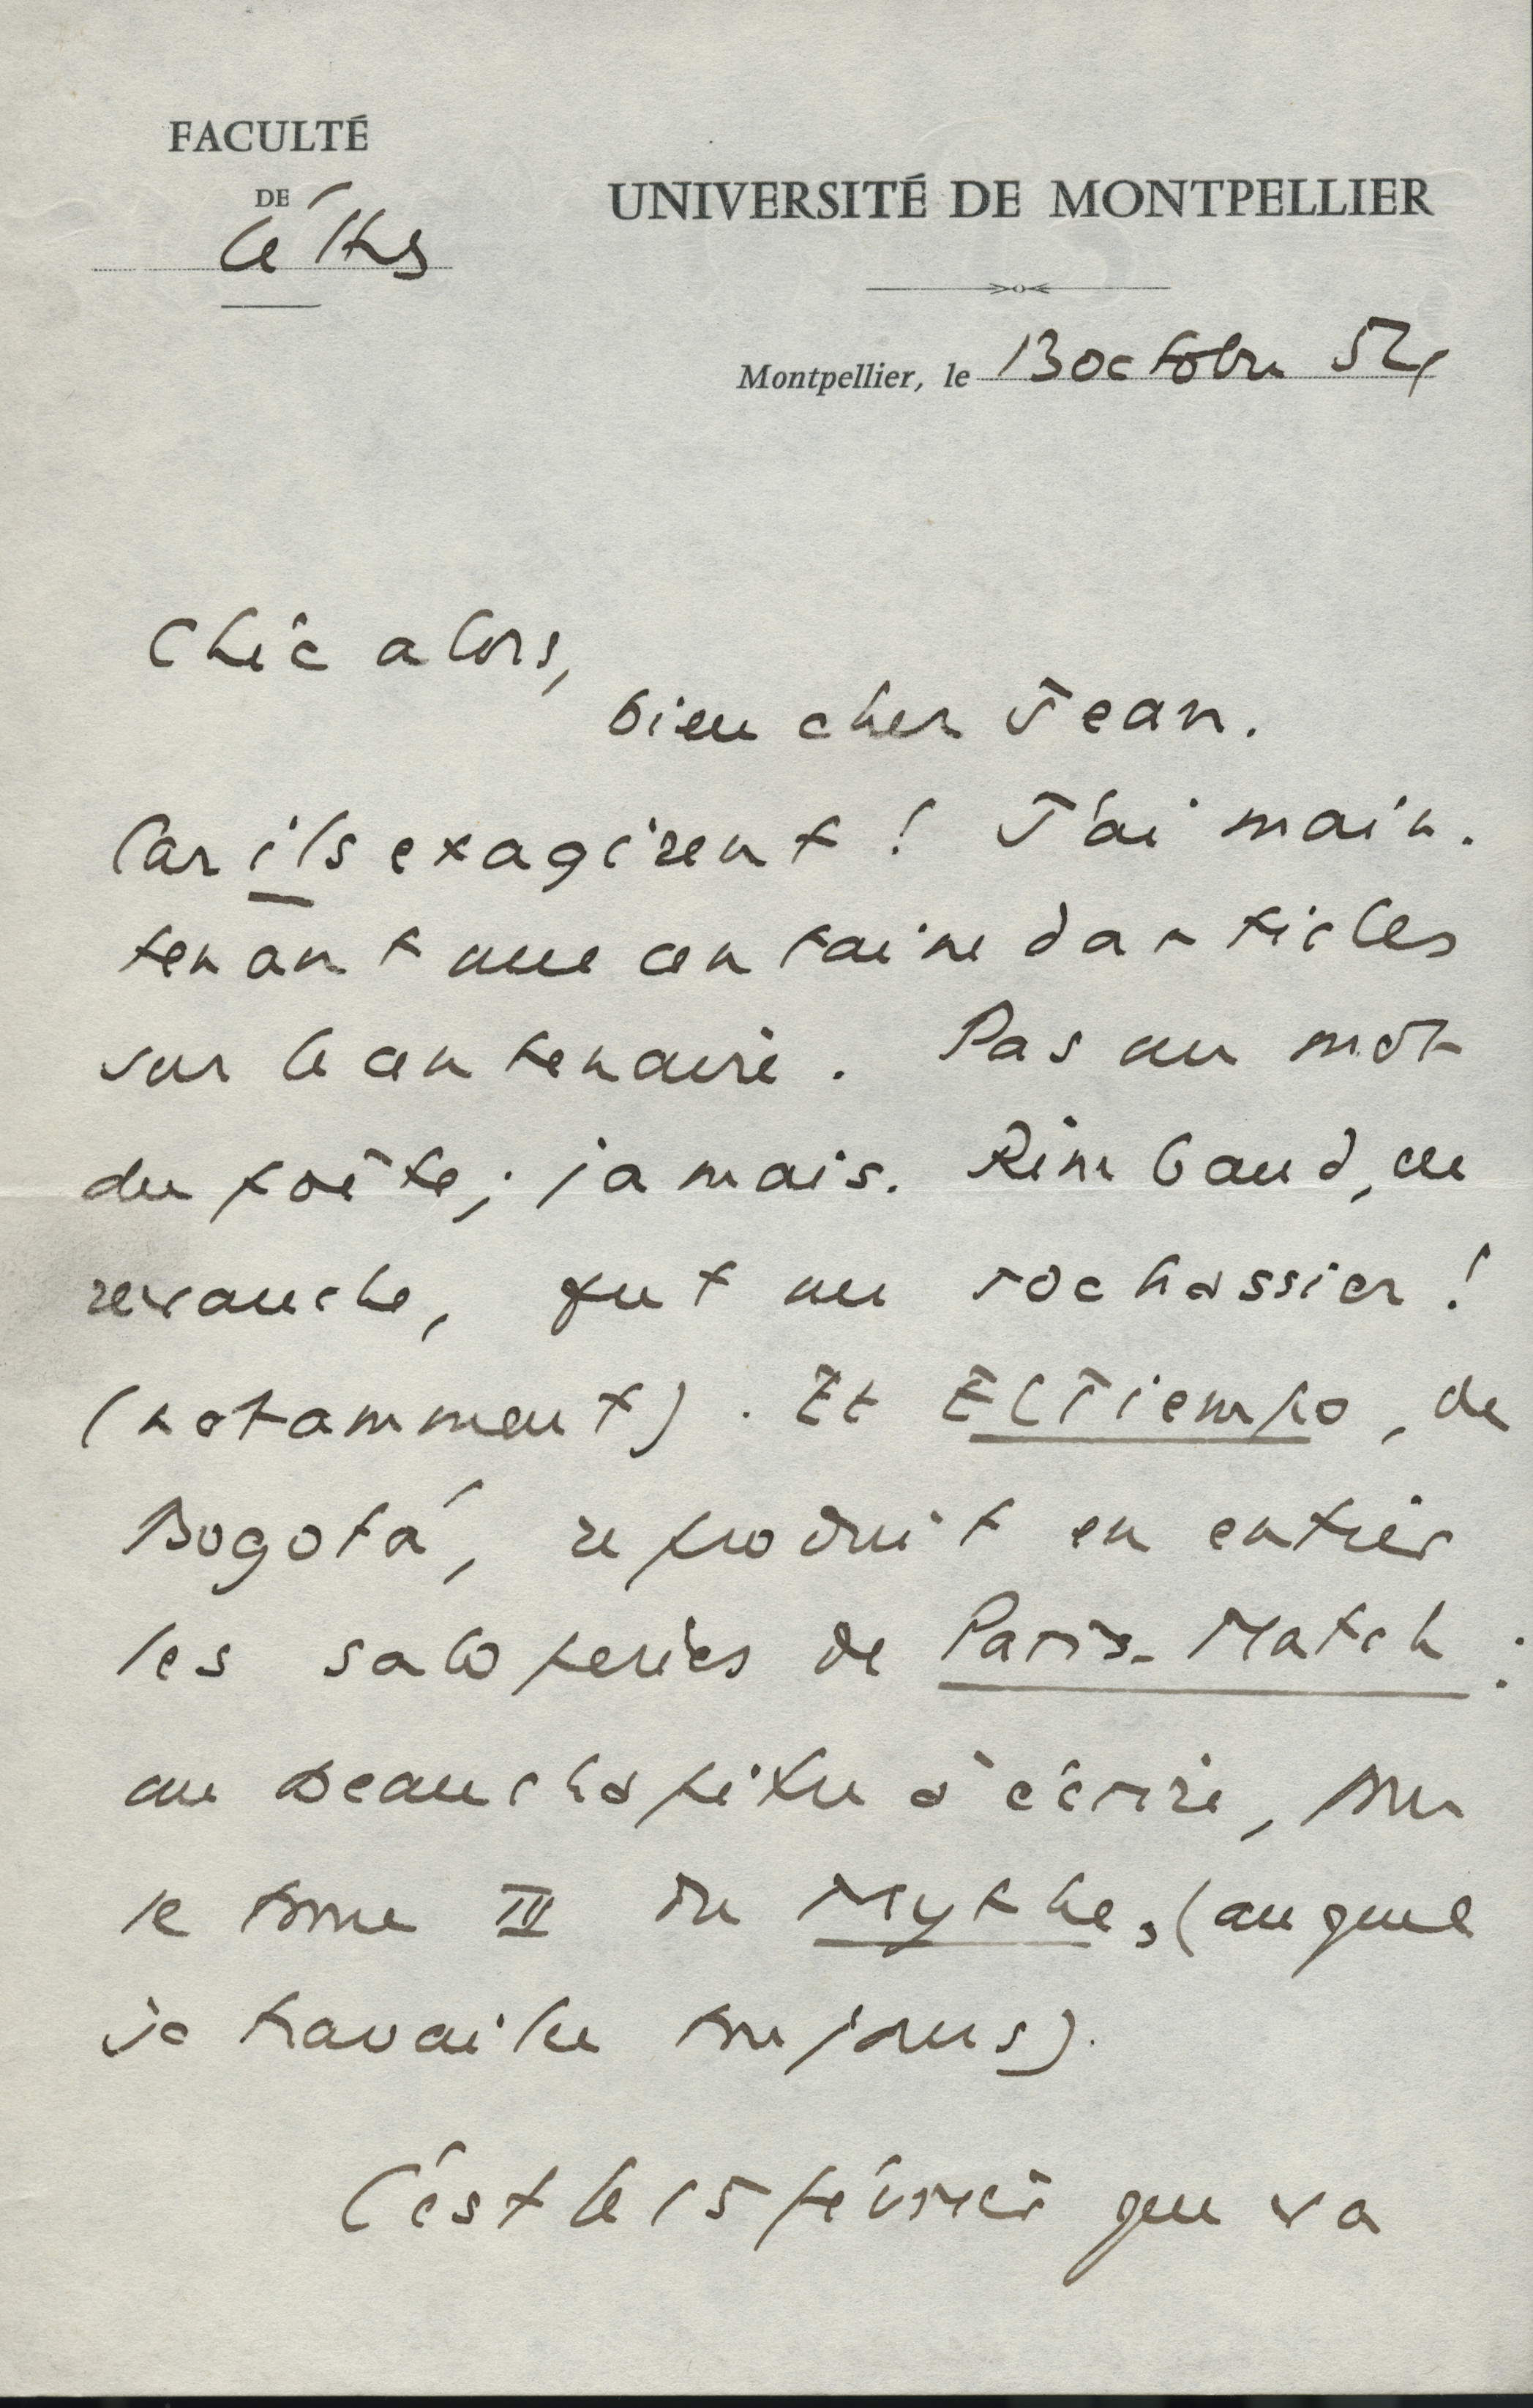 FACULTÉ
DE
UNIVERSITÉ DE MONTPELLIER
Lettres
Montpellier, le 13 octobre 54
Chic alors,
bien cher Jean.
Car ils exagèrent ! J'ai main-
tenant une centaine d'articles
sur le centenaire. Pas un mot
du poète ; jamais. Rimbaud, en
revanche, fut un rochassier !
(notamment). Et El Tiempo, de
Bogotá, reproduit en entier
les saloperies de Paris-Match :
un beau chapitre à écrire, pour
le tome III du Mythe, (auquel
je travaille toujours).
C'est le 15 février que va